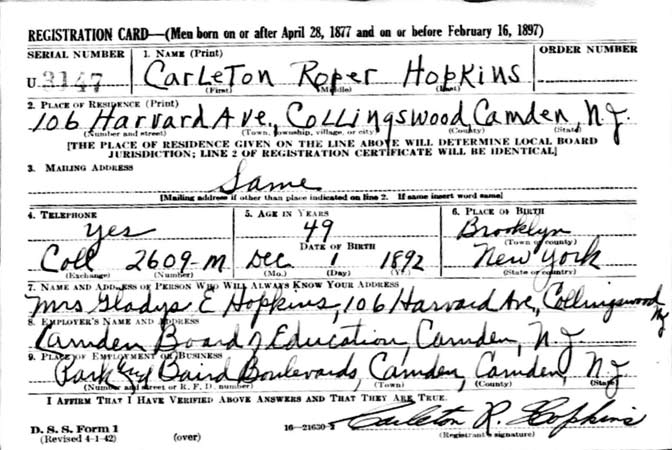 REGISTRATION CARD—(Men born on or after April 28, 1877 and on or before February 16, 1897)
SERIAL NUMBER 1. NAME (Print) ORDER NUMBER
U 3147 Carleton Roper Hopkins
(First) (Middle) (Last)
2. PLACE OF RESIDENCE (Print)
106 Harvard Ave., Collingswood, Camden, N.J.
(Number and street) (Town, township, village, or city) (County) (State)
[THE PLACE OF RESIDENCE GIVEN ON THE LINE ABOVE WILL DETERMINE LOCAL BOARD
JURISDICTION; LINE 2 OF REGISTRATION CERTIFICATE WILL BE IDENTICAL]
3. MAILING ADDRESS
Same
[Mailing address if other than place indicated on line 2. If same insert word same]
4. TELEPHONE 5. AGE IN YEARS 6. PLACE OF BIRTH
Yes 49 Brooklyn
DATE OF BIRTH (Town or county)
Coll 2609-M Dec. 1 1892 New York
(Exchange) (Number) (Mo.) (Day) (Yr.) (State or country)
7. NAME AND ADDRESS OF PERSON WHO WILL ALWAYS KNOW YOUR ADDRESS
Mrs Gladys E Hopkins, 106 Harvard Ave, Collingswood NJ
8. EMPLOYER'S NAME AND ADDRESS
Camden Board of Education, Camden, N.J.
9. PLACE OF EMPLOYMENT OR BUSINESS
Park and Baird Boulevards, Camden, Camden, NJ
(Number and street or R. F. D. number) (Town) (County) (State)
I AFFIRM THAT I HAVE VERIFIED ABOVE ANSWERS AND THAT THEY ARE TRUE.
D. S. S. Form 1 16—21630-2 Carleton R. Hopkins
(Revised 4-1-42) (over) (Registrant's signature)